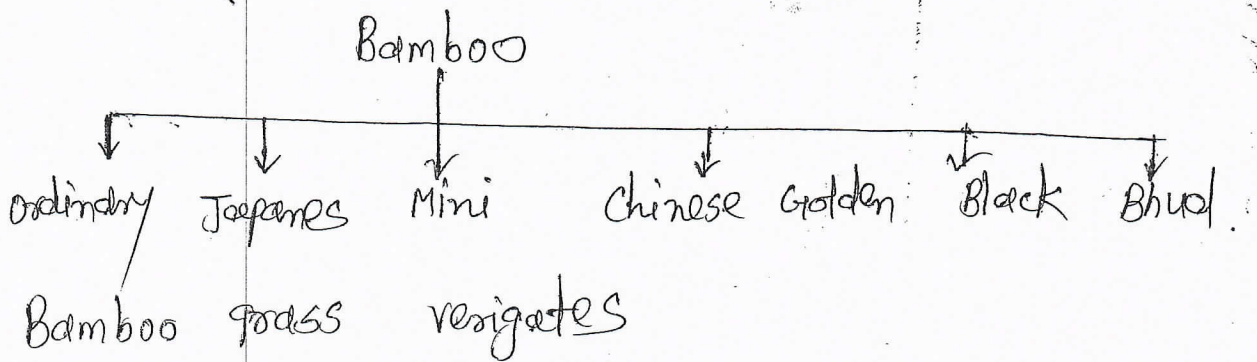 Bamboo
ordinary Japanes Mini Chinese Golden Black Bhud.
Bamboo grass verigates